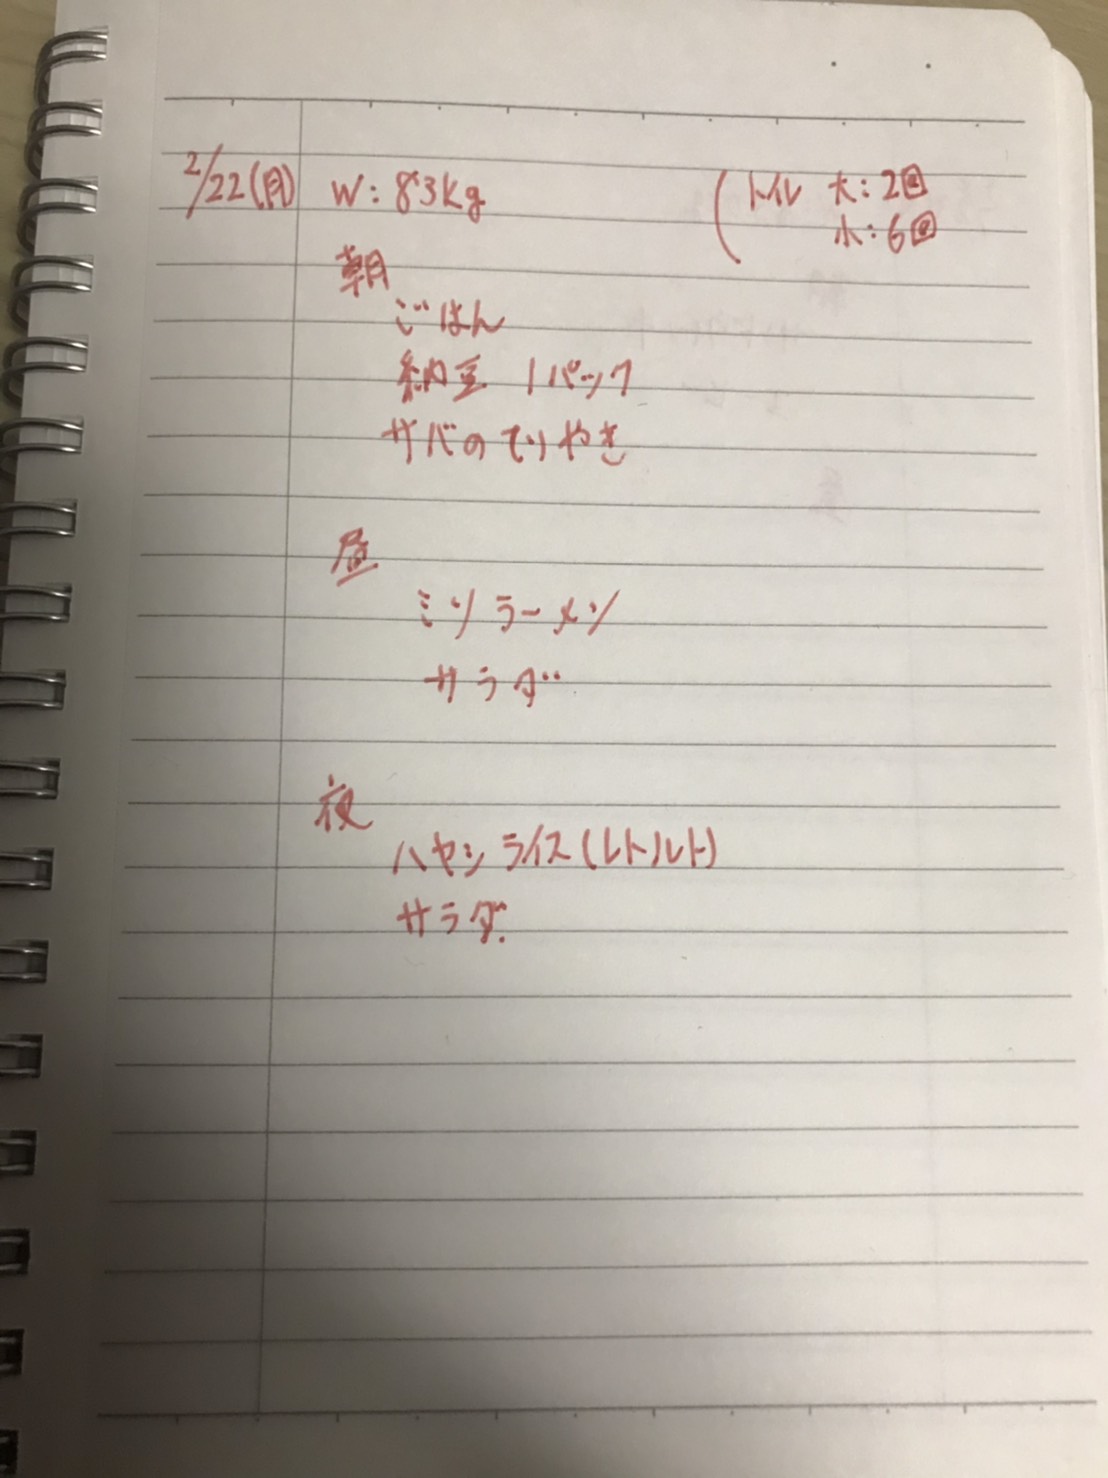 2/22(月) W: 83kg (トイレ 大: 2回
小: 6回
朝
ごはん
納豆 1パック
サバのてりやき
昼
ミソラーメン
サラダ
夜
ハヤシライス(レトルト)
サラダ.